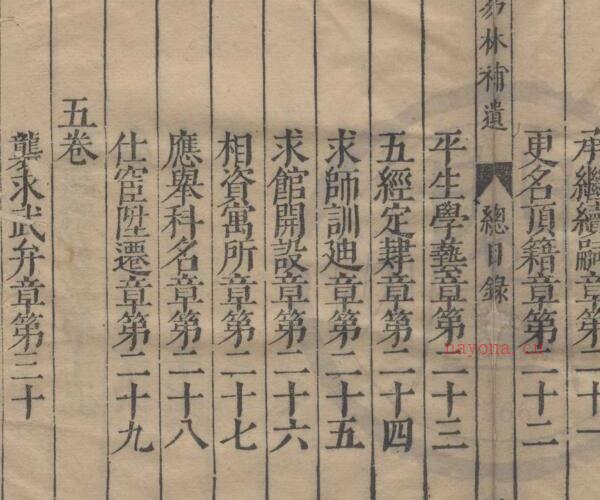 承繼續嗣章第二十一
更名頂籍章第二十二
易林補遺 總目錄
平生學藝章第二十三
五經定肄章第二十四
求師訓廸章第二十五
求館開設章第二十六
相資寓所章第二十七
應舉科名章第二十八
仕宦陞遷章第二十九
五卷
襲求武弁章第三十
nayona.cn